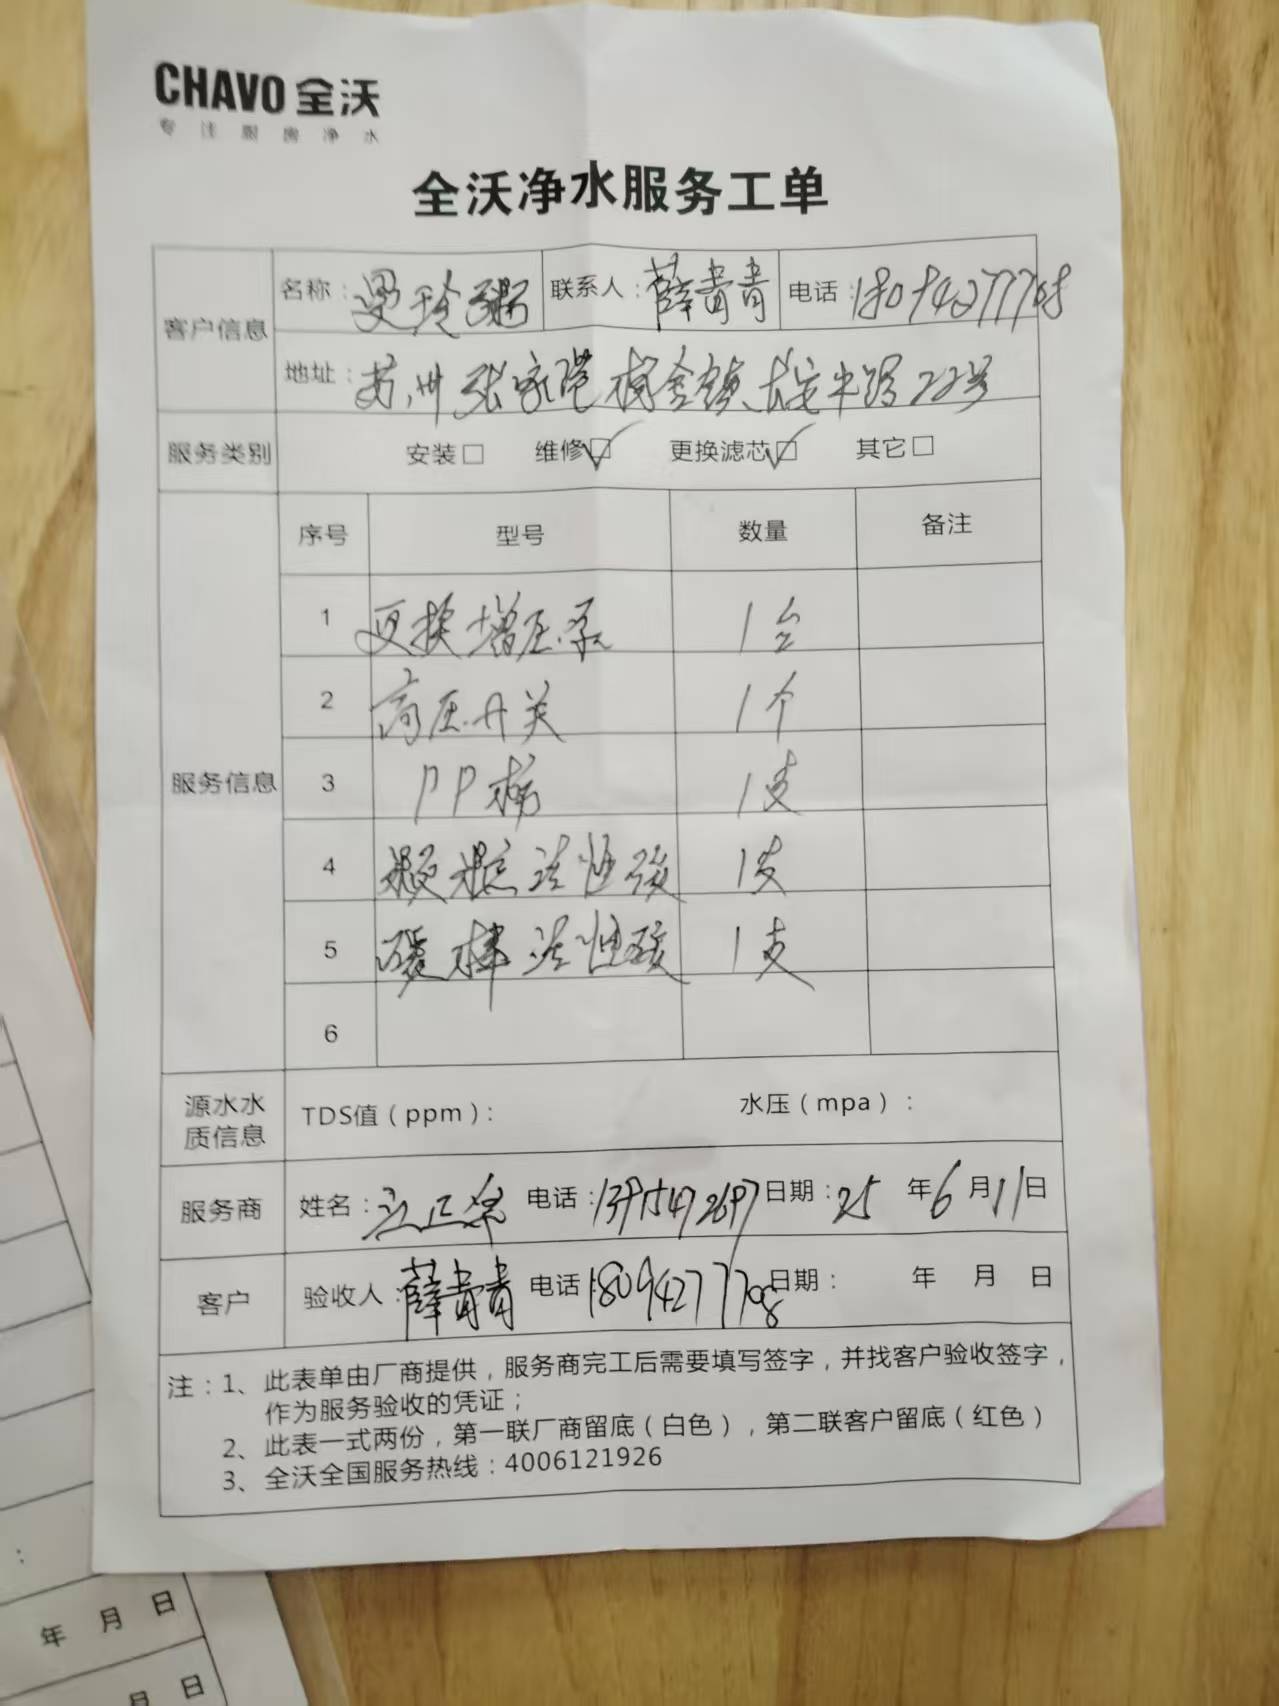 CHAVO 全沃
专注厨房净水
全沃净水服务工单
客户信息
名称：曼玲粥 联系人：薛青青 电话：18094277708
地址：苏州张家港杨舍镇长安中路22号
服务类别 安装□ 维修☑ 更换滤芯☑ 其它□
服务信息
序号 型号 数量 备注
1 更换增压泵 1台
2 高压开关 1个
3 PP棉 1支
4 颗粒活性碳 1支
5 碳棒活性碳 1支
6
源水水质信息 TDS值（ppm）： 水压（mpa）：
服务商 姓名： 电话： 日期：25年6月11日
客户 验收人：薛青青 电话18094277708日期： 年 月 日
注：1、此表单由厂商提供，服务商完工后需要填写签字，并找客户验收签字，
作为服务验收的凭证；
2、此表一式两份，第一联厂商留底（白色），第二联客户留底（红色）
3、全沃全国服务热线：4006121926
：
年 月 日
月 日